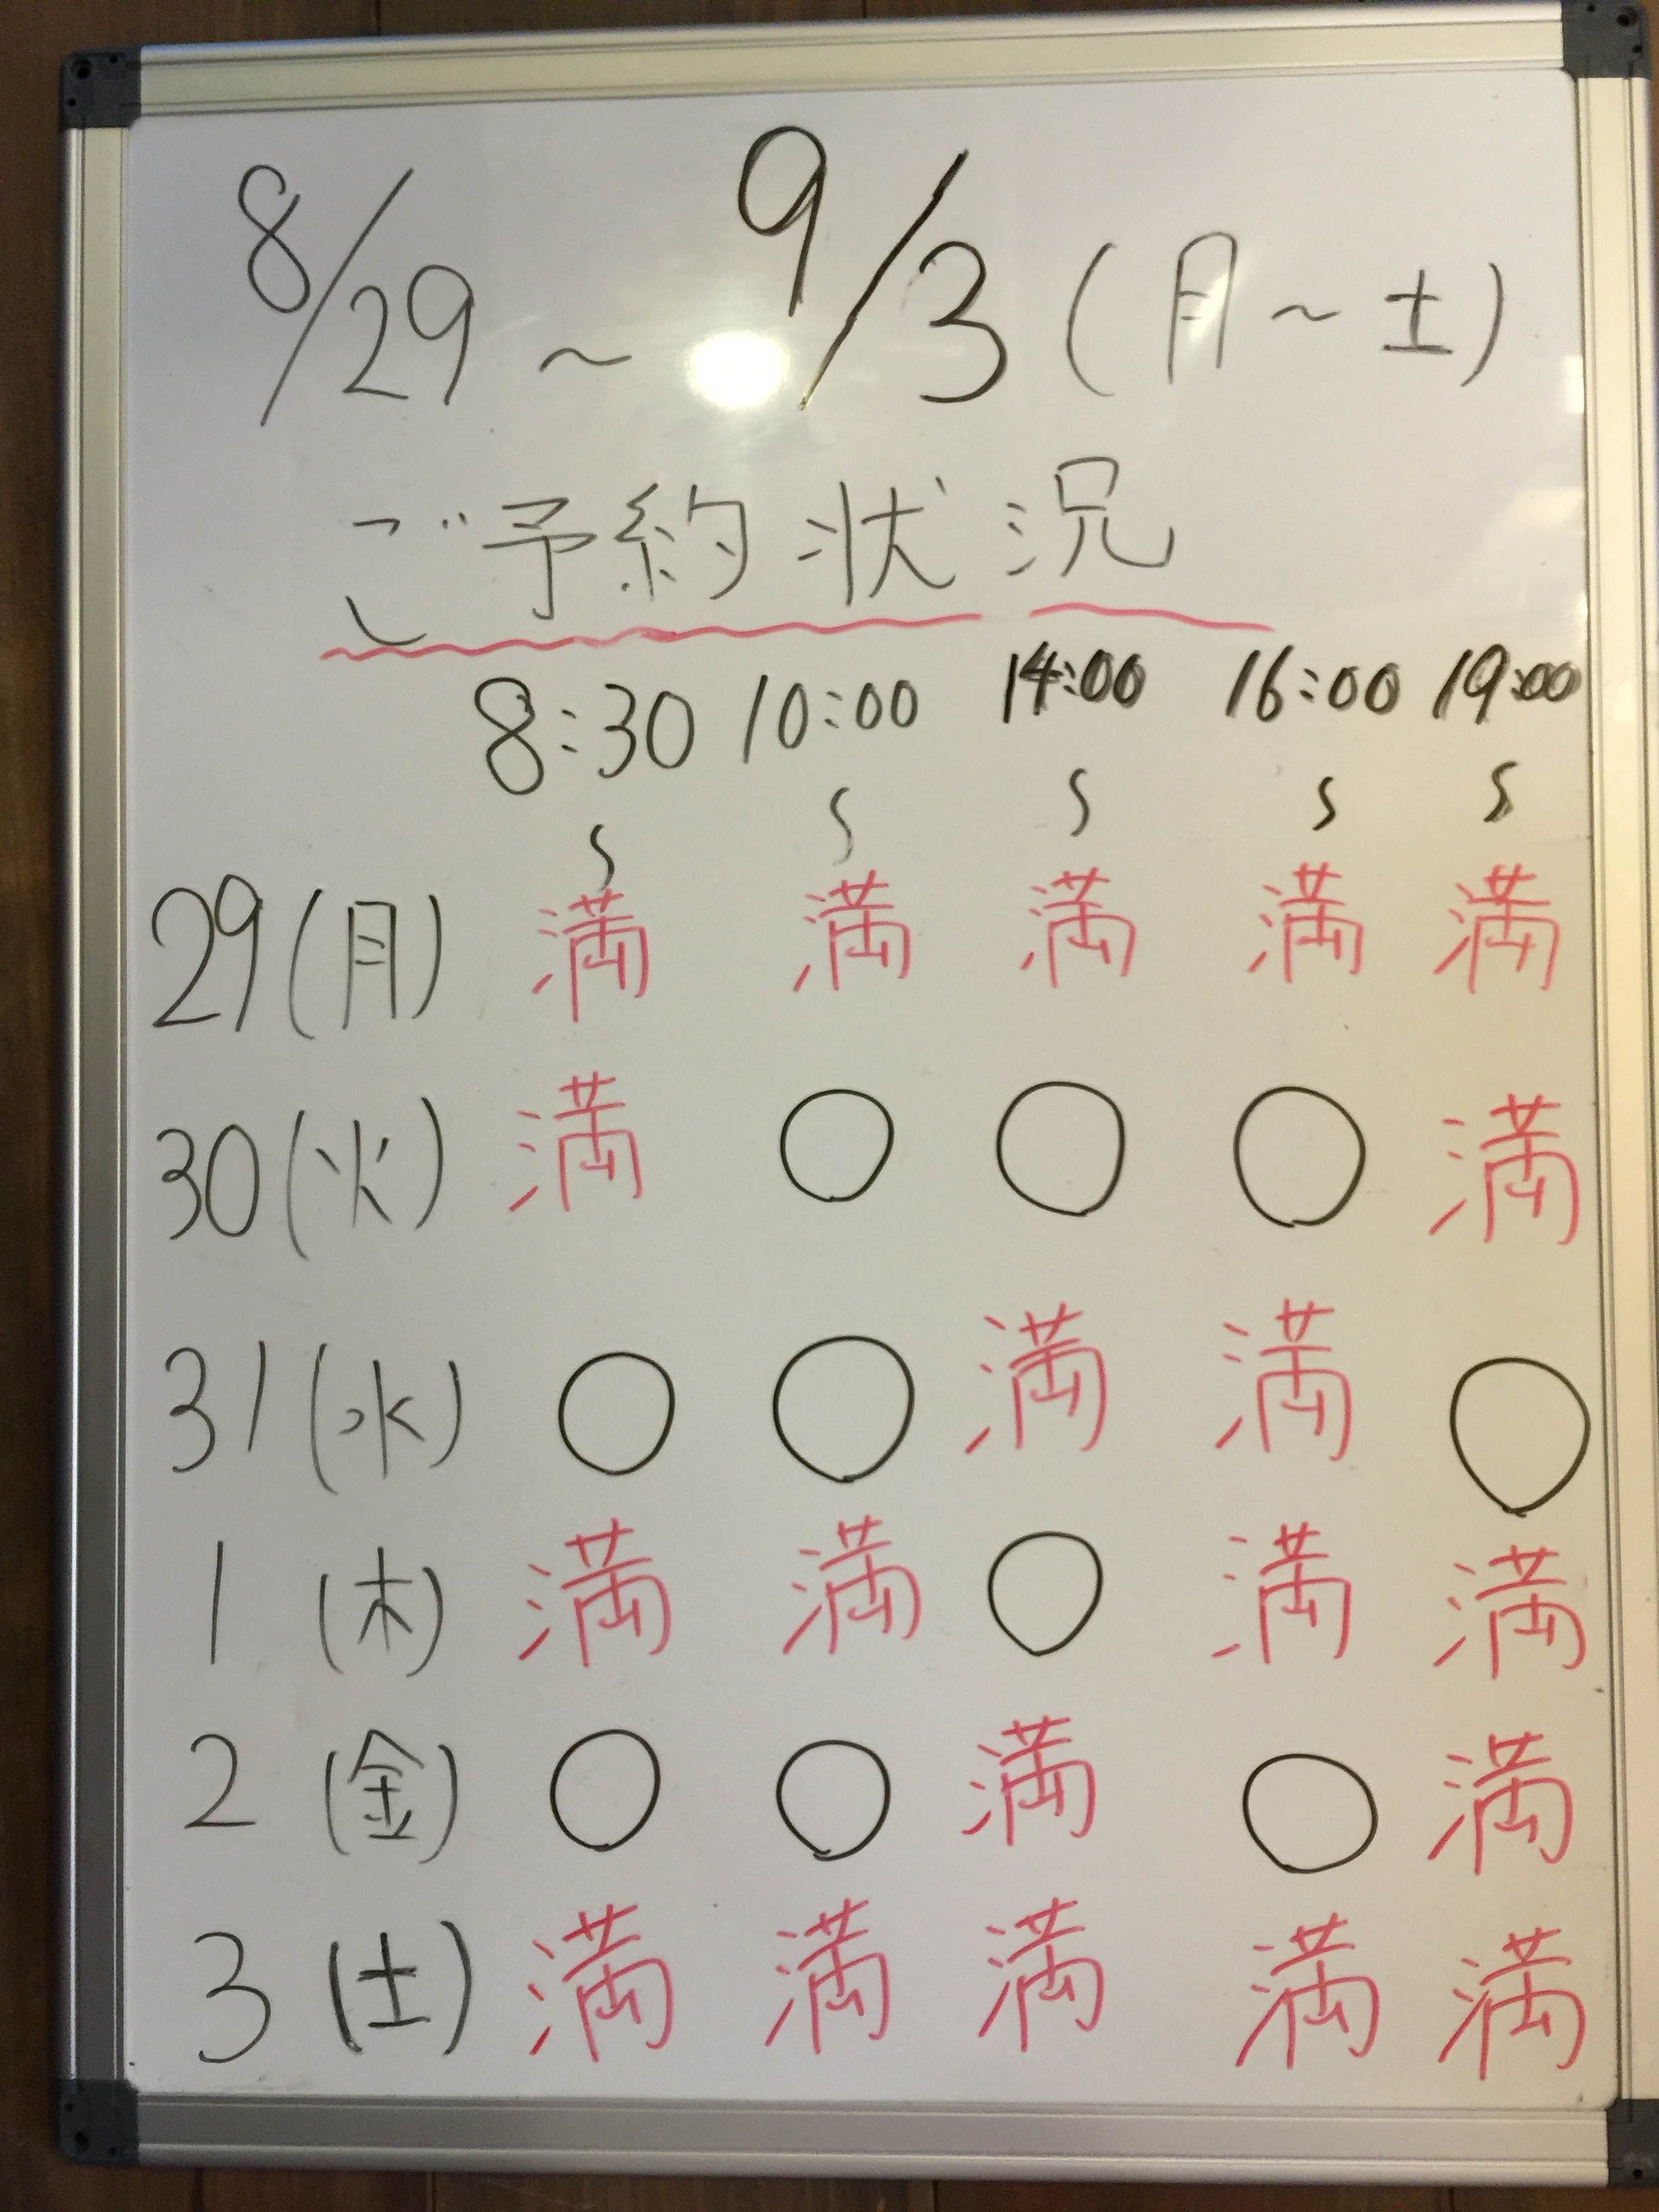 8/29 ~ 9/3 (月~土)
ご予約状況
8:30 10:00 14:00 16:00 19:00
~ ~ ~ ~ ~
29(月) 満 満 満 満 満
30(火) 満 ○ ○ ○ 満
31(水) ○ ○ 満 満 ○
1 (木) 満 満 ○ 満 満
2 (金) ○ ○ 満 ○ 満
3 (土) 満 満 満 満 満